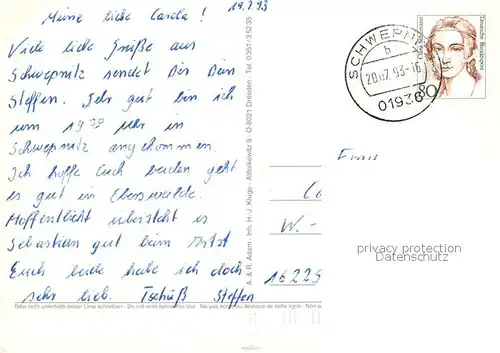 Meine liebe Carola !
19.7.93
Viele liebe Grüße aus
Schwepnitz sendet Dir Dein
Steffen. Sehr gut bin ich
um 19 00 Uhr in
Schwepnitz angekommen.
Ich hoffe Euch beiden geht
es gut in Eberswalde.
Hoffentlicht übersteht es
Sebastian gut beim Artzt
Euch beide habe ich doch
sehr lieb. Tschüß Steffen
Bitte nicht unterhalb dieser Linie schreiben - Do not write below this line - Ne pas écrire au dessous de cette ligne - Non
A. & R. Adam - Inh. H.-J. Kluge - Alttolkewitz 9 - O-8021 Dresden · Tel. 0351/35235
SCHWEPNITZ
b
20.07.93-16
01936
Deutsche Bundespost
80
Frau
W.-
16225
privacy protection
Datenschutz